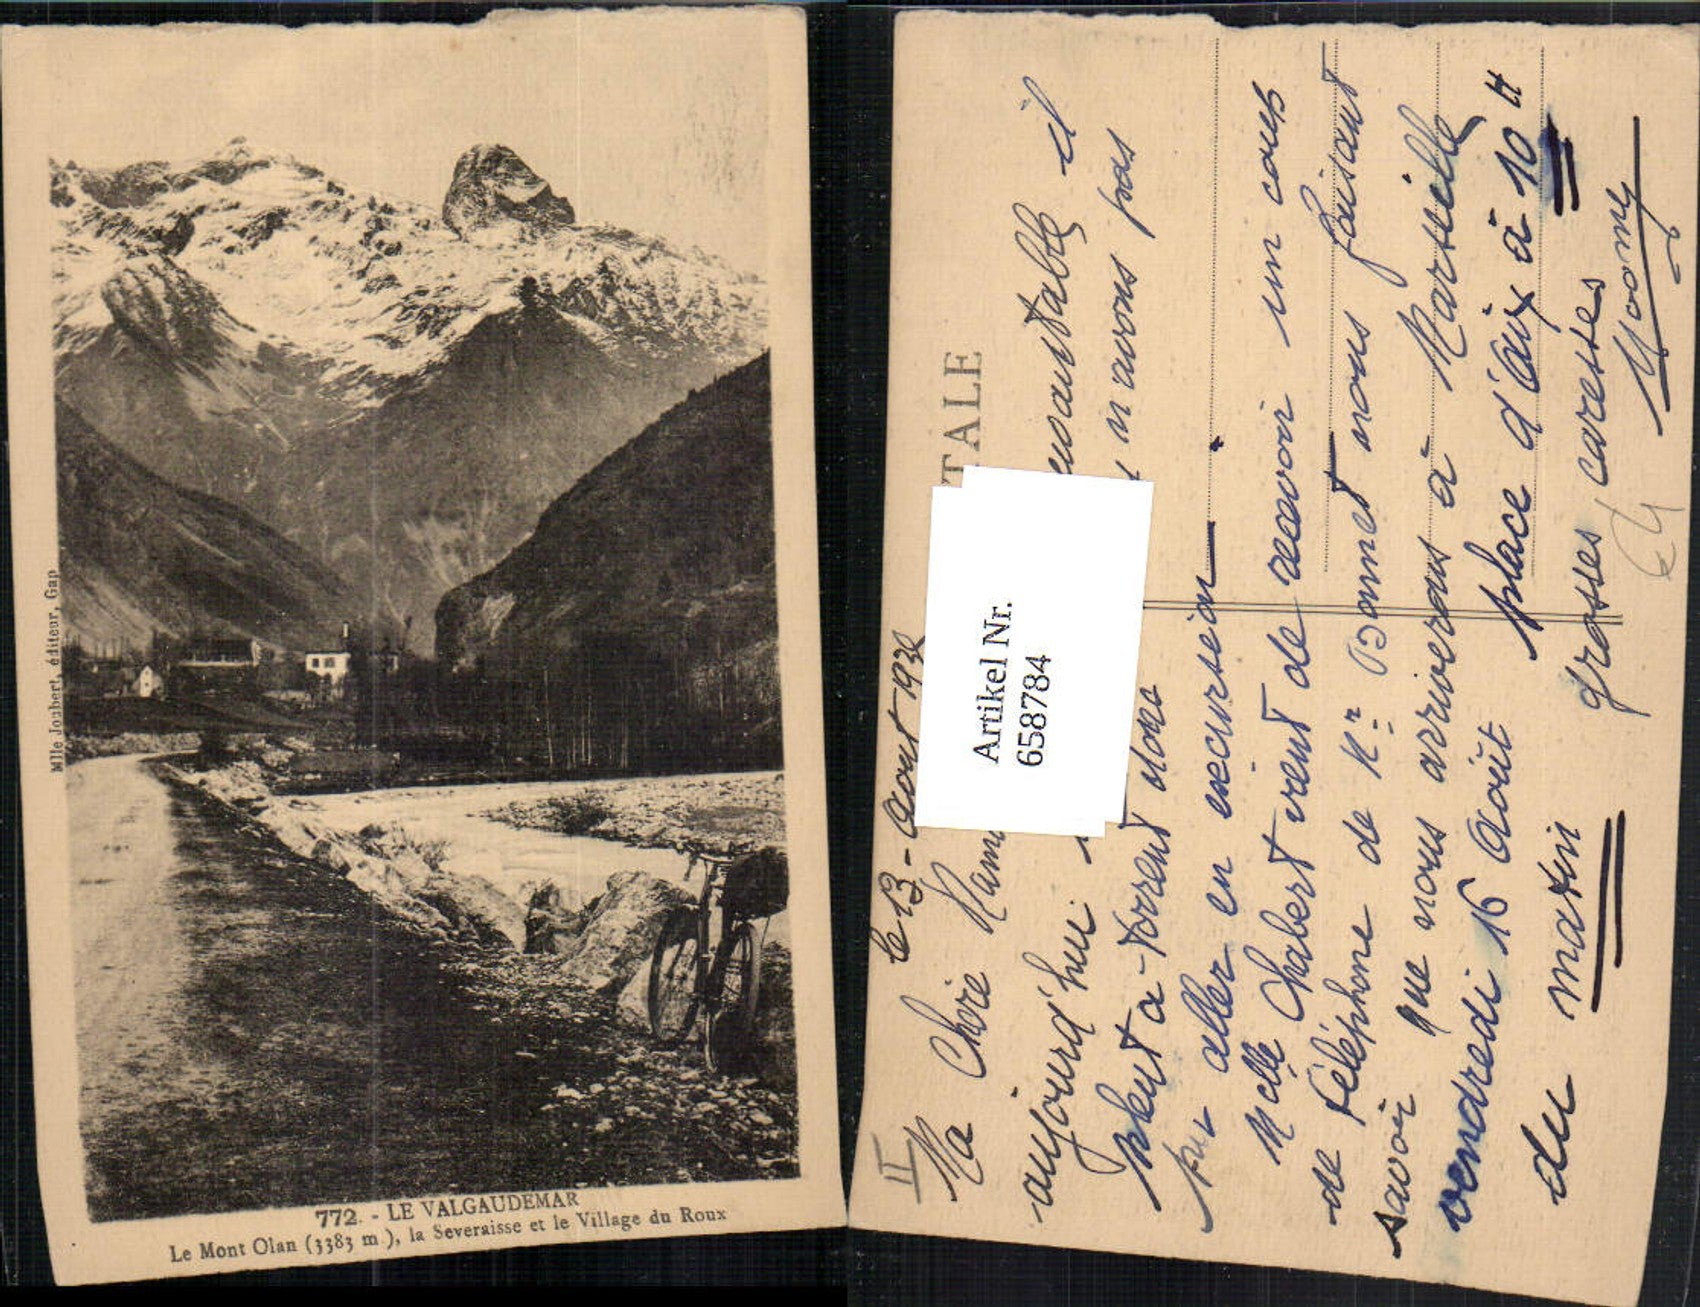 Mlle Joubert, éditeur, Gap
772. - LE VALGAUDEMAR
Le Mont Olan (3383 m ), la Severaisse et le Village du Roux
TALE
Artikel Nr.
658784
II
le 13 - Aout 193
Ma Chère Mam
il
aujourd'hui
n'avons pas
pleut à-torrent donc
pu aller en excursion
Melle Chabert vient de recevoir un coup
de téléphone de Mr Bonnet nous faisant
savoir que nous arriverons à Marseille
vendredi 16 Août place d'Aix à 10 H
du matin grosses caresses